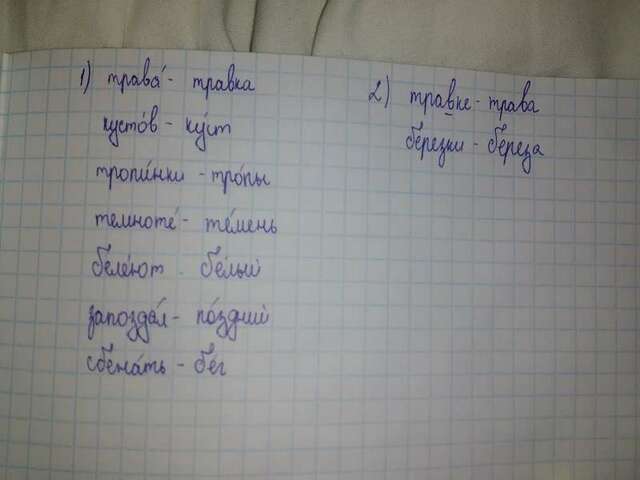 1) трава́ - травка
кусто́в - ку́ст
тропи́нки - тро́пы
темноте́ - те́мень
беле́ют - бе́лый
запозда́л - по́здний
сбежа́ть - бе́г
2) травке - трава
березки - береза